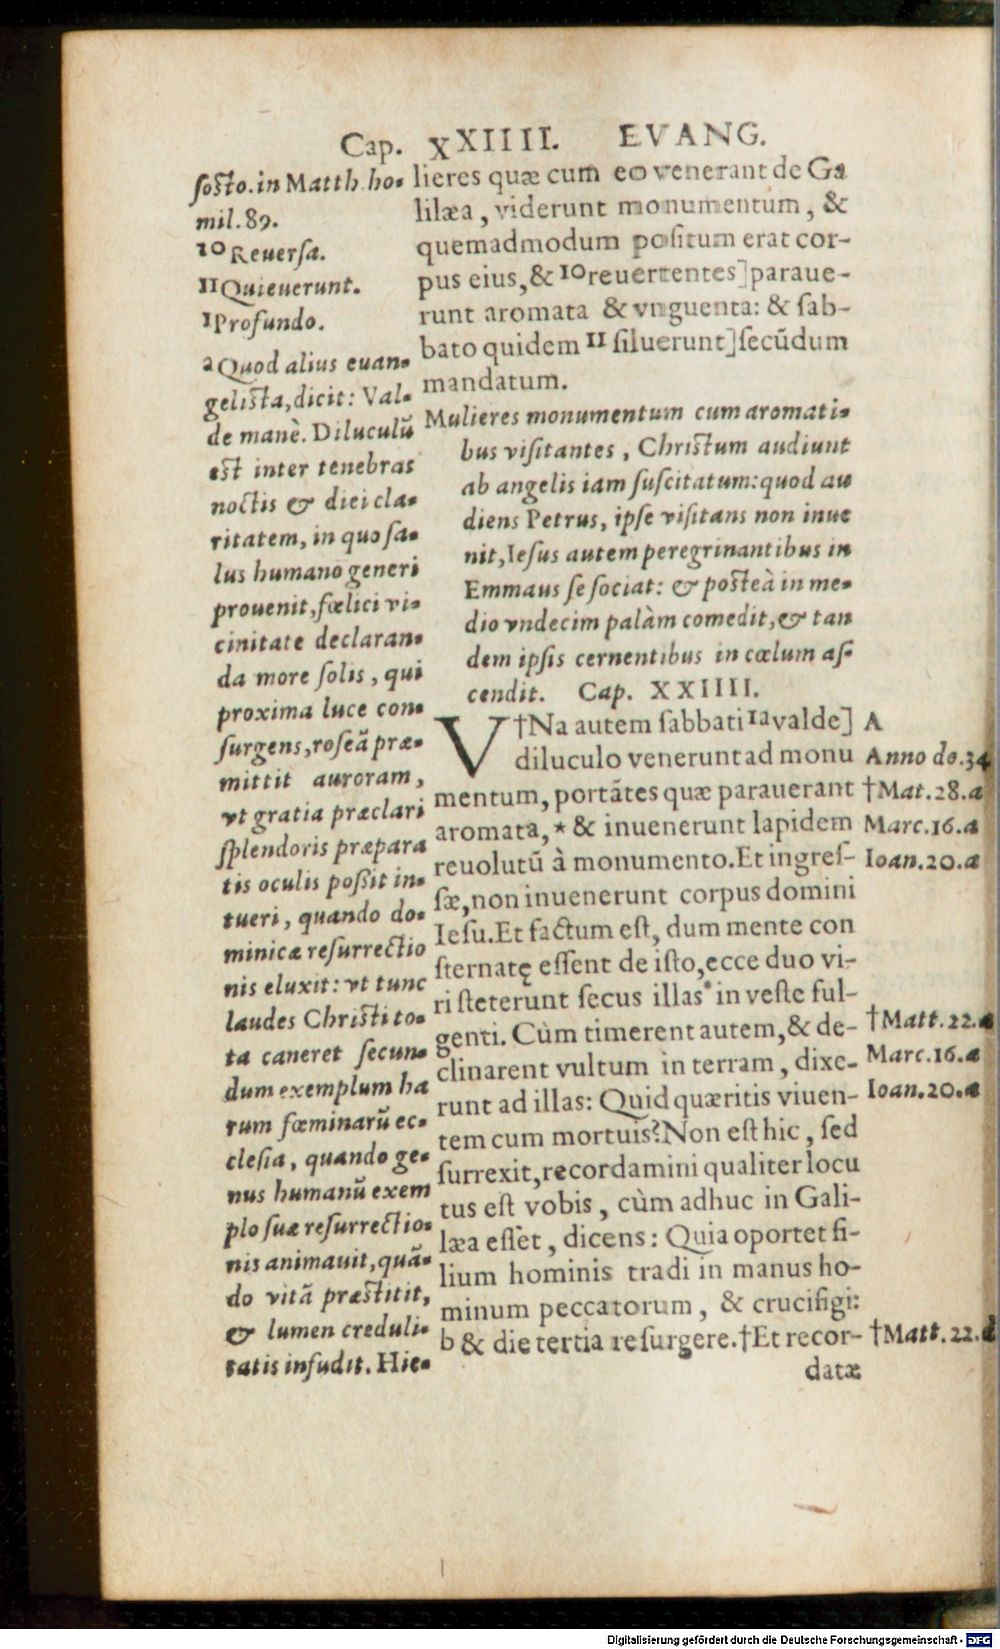 Cap. XXIIII. EVANG.
ſoſto.in Matth.ho-
mil.89.
10 Reuerſa.
11 Quieuerunt.
1 Profundo.
2 Quod alius euan-
geliſta,dicit: Val-
de manè. Diluculũ
eſt inter tenebras
noctis & diei cla-
ritatem, in quo ſa-
lus humano generi
prouenit,fœlici vi-
cinitate declaran-
da more ſolis, qui
proxima luce con-
ſurgens,roſeã præ-
mittit auroram,
vt gratia præclari
ſplendoris præpara
tis oculis poſſit in-
tueri, quando do-
minicæ reſurrectio
nis eluxit: vt tunc
laudes Chriſti to-
ta caneret ſecun-
dum exemplum ha
rum fœminarũ ec-
cleſia, quando ge-
nus humanũ exem
plo ſuæ reſurrectio-
nis animauit,quã-
do vitã præſtitit,
& lumen creduli-
tatis inſudit. Hie-
lieres quæ cum eo venerant de Ga
lilæa, viderunt monumentum, &
quemadmodum poſitum erat cor-
pus eius,& 10 reuertentes] paraue-
runt aromata & vnguenta: & ſab-
bato quidem 11 ſiluerunt] ſecũdum
mandatum.
Mulieres monumentum cum aromati-
bus viſitantes, Chriſtum audiunt
ab angelis iam ſuſcitatum:quod au
diens Petrus, ipſe viſitans non inue
nit,Ieſus autem peregrinantibus in
Emmaus ſe ſociat: & poſteà in me-
dio vndecim palàm comedit,& tan
dem ipſis cernentibus in cœlum aſ-
cendit. Cap. XXIIII.
V†Na autem ſabbati 1a valde]
diluculo venerunt ad monu
mentum, portãtes quæ parauerant
aromata, * & inuenerunt lapidem
reuolutũ à monumento.Et ingreſ-
ſæ,non inuenerunt corpus domini
Ieſu.Et factum eſt, dum mente con
ſternatę eſſent de iſto,ecce duo vi-
ri ſteterunt ſecus illas* in veſte ful-
genti. Cùm timerent autem,& de-
clinarent vultum in terram, dixe-
runt ad illas: Quid quæritis viuen-
tem cum mortuis? Non eſt hic, ſed
ſurrexit,recordamini qualiter locu
tus eſt vobis, cùm adhuc in Gali-
læa eſſet, dicens: Quia oportet fi-
lium hominis tradi in manus ho-
minum peccatorum, & crucifigi:
b & die tertia reſurgere.†Et recor-
datæ
A
Anno do.34
†Mat.28.a
Marc.16.a
Ioan.20.a
†Matt.22.
Marc.16.a
Ioan.20.a
†Matt.22.d
Digitalisierung gefördert durch die Deutsche Forschungsgemeinschaft - DFG